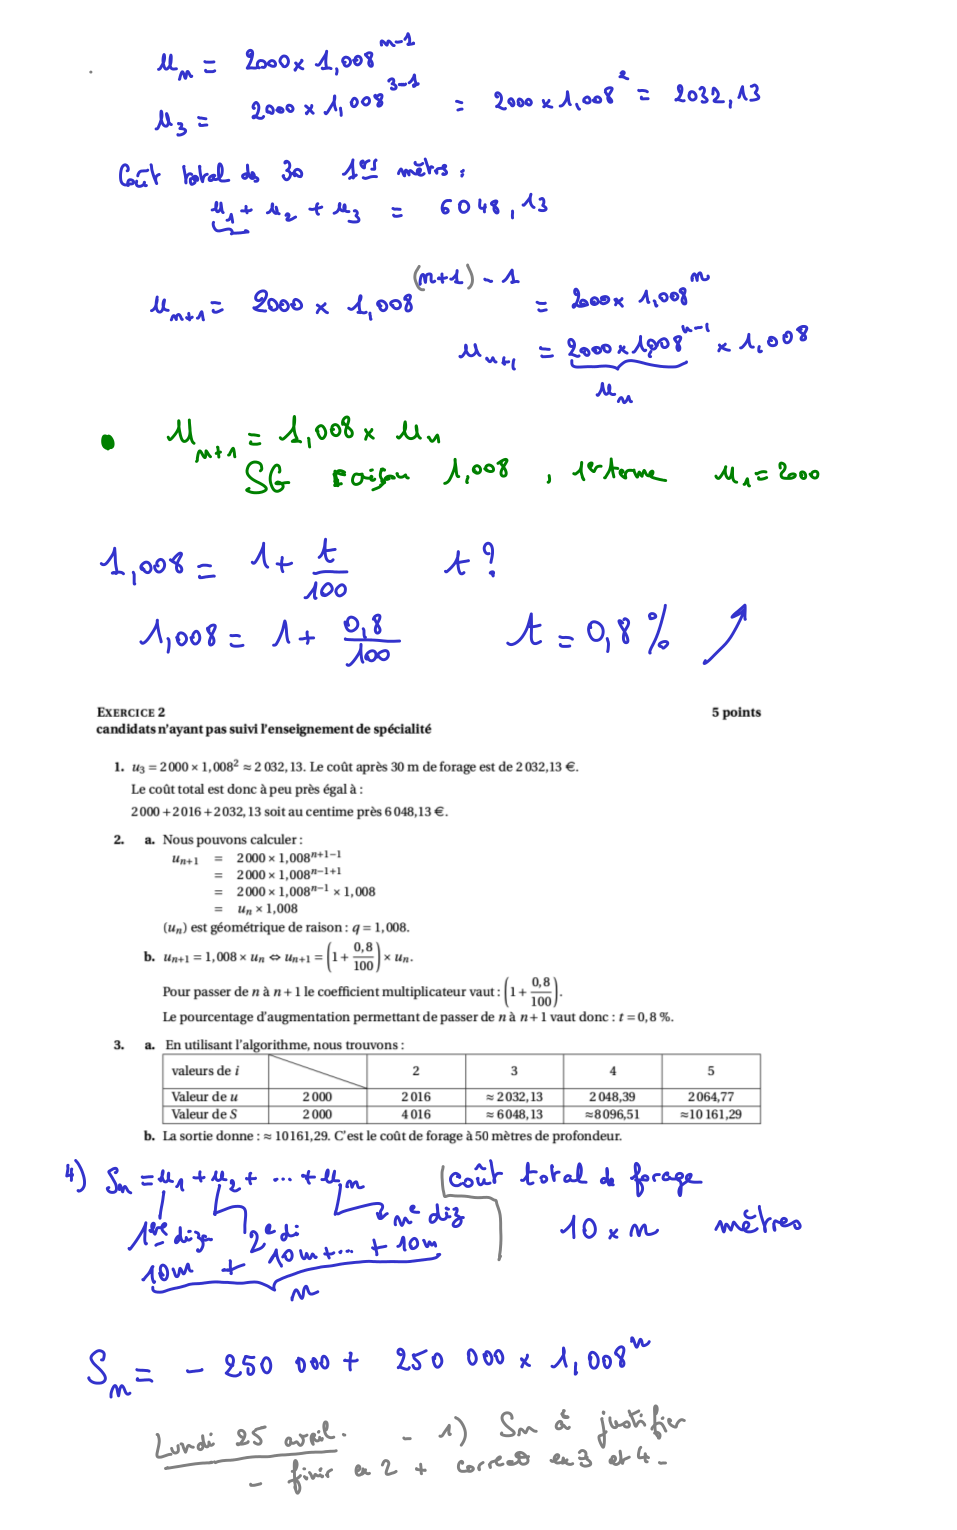 uₙ = 2000 × 1,008ⁿ⁻¹
u₃ = 2000 × 1,008³⁻¹ = 2000 × 1,008² = 2032,13
Coût total des 30 1ers mètres :
u₁ + u₂ + u₃ = 6048,13
uₙ₊₁ = 2000 × 1,008⁽ⁿ⁺¹⁾⁻¹ = 2000 × 1,008ⁿ
uₙ₊₁ = 2000 × 1,008ⁿ⁻¹ × 1,008
uₙ
• uₙ₊₁ = 1,008 × uₙ
SG raison 1,008 , 1er terme u₁ = 2000
1,008 = 1 + t/100 t ?
1,008 = 1 + 0,8/100 t = 0,8 % ↗
EXERCICE 2 5 points
candidats n'ayant pas suivi l'enseignement de spécialité
1. u₃ = 2000 × 1,008² ≈ 2 032,13. Le coût après 30 m de forage est de 2 032,13 €.
Le coût total est donc à peu près égal à :
2000 + 2016 + 2032,13 soit au centime près 6 048,13 €.
2. a. Nous pouvons calculer :
uₙ₊₁ = 2 000 × 1,008ⁿ⁺¹⁻¹
= 2 000 × 1,008ⁿ⁻¹⁺¹
= 2 000 × 1,008ⁿ⁻¹ × 1,008
= uₙ × 1,008
(uₙ) est géométrique de raison : q = 1,008.
b. uₙ₊₁ = 1,008 × uₙ ⇔ uₙ₊₁ = (1 + 0,8/100) × uₙ.
Pour passer de n à n + 1 le coefficient multiplicateur vaut : (1 + 0,8/100).
Le pourcentage d'augmentation permettant de passer de n à n + 1 vaut donc : t = 0,8 %.
3. a. En utilisant l'algorithme, nous trouvons :
valeurs de i 2 3 4 5
Valeur de u 2 000 2 016 ≈ 2 032,13 2 048,39 2 064,77
Valeur de S 2 000 4 016 ≈ 6 048,13 ≈ 8 096,51 ≈ 10 161,29
b. La sortie donne : ≈ 10161,29. C'est le coût de forage à 50 mètres de profondeur.
4) Sₙ = u₁ + u₂ + ... + uₙ coût total de forage
1ère diza 2e di ne diz 10 × n mètres
10m + 10m + ... + 10m
n
Sₙ = - 250 000 + 250 000 × 1,008ⁿ
Lundi 25 avril. - 1) Sₙ à justifier
- finir ex 2 + correct ex 3 et 4 -